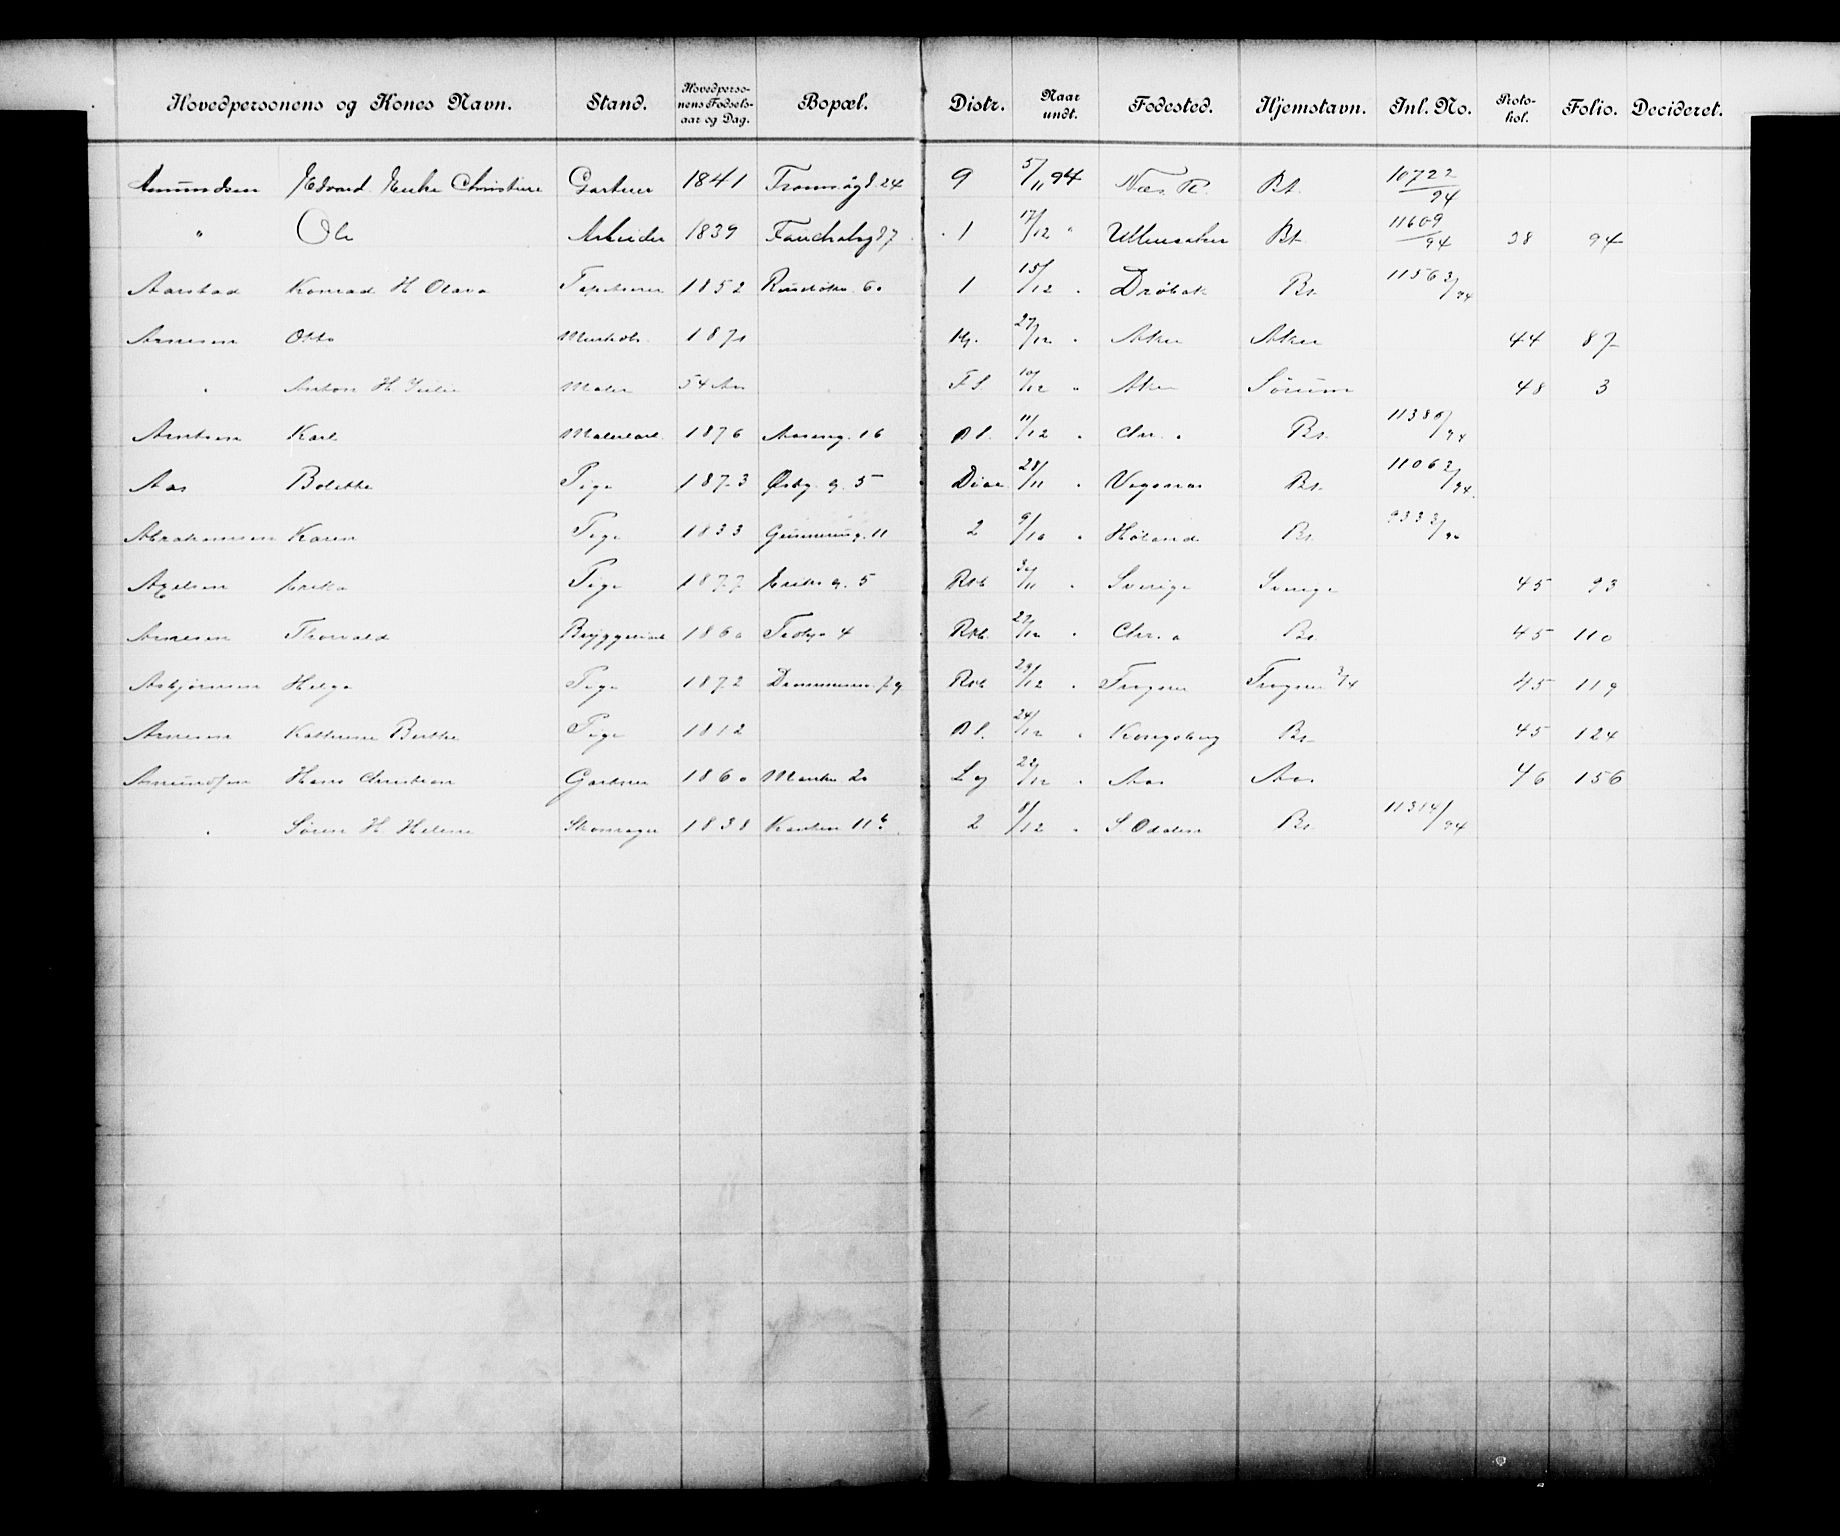 Hovedpersonens og Kones Navn. Stand. Hovedpersonens Fødselsaar og Dag. Bopæl. Distr. Naar undt. Fødested. Hjemstavn. Inl. No. Protokol. Folio. Decideret.
Amundsen Edvard Enke Christine Gartner 1841 Tromsøgd. 24 9 5/11 94 Næs R. Bt. 10722/94
" Ole Arbeider 1839 1 17/12 " Ullensaker Bt. 11609/94 38 94
Aarstad Konrad H Olava 1852 60 1 15/12 " Drøbak Bt. 11563/94
Arnesen Otto 1871 27/12 " Aker Aker 44 87
" Anton H Julie Maler 54 Aar F S 10/12 " Aker Sørum 48 3
Arntsen Karl Malerlærl. 1876 Aaseng. 16 11/12 " Chr.a Bt. 11386/94
Aas Bolette Pige 1873 Østg. g. 5 Diac 28/11 " Bt. 11063/94
Abrahamsen Karen Pige 1833 11 2 9/10 " Høland Bt. 9333/94
Axelsen Erika Pige 1877 Eriks g. 5 Rst 30/11 " Sverige Sverige 45 93
Arnesen Thorvald Bryggeriarb 1860 4 Rst. 20/12 " Chr.a Bt. 45 110
Asbjørnsen Helga Pige 1872 Rst 29/12 " Frogner Frogner 3/4 45 119
Arnesen Kathrine Berthe Pige 1812 24/12 " Kongsberg Bt. 45 124
Amundsen Hans Christian Gartner 1860 20 L g 22/12 " Aas Aas 46 156
" Søren H Helene Skomager 1838 11 b. 2 8/12 " S Odalen Bt. 11314/94